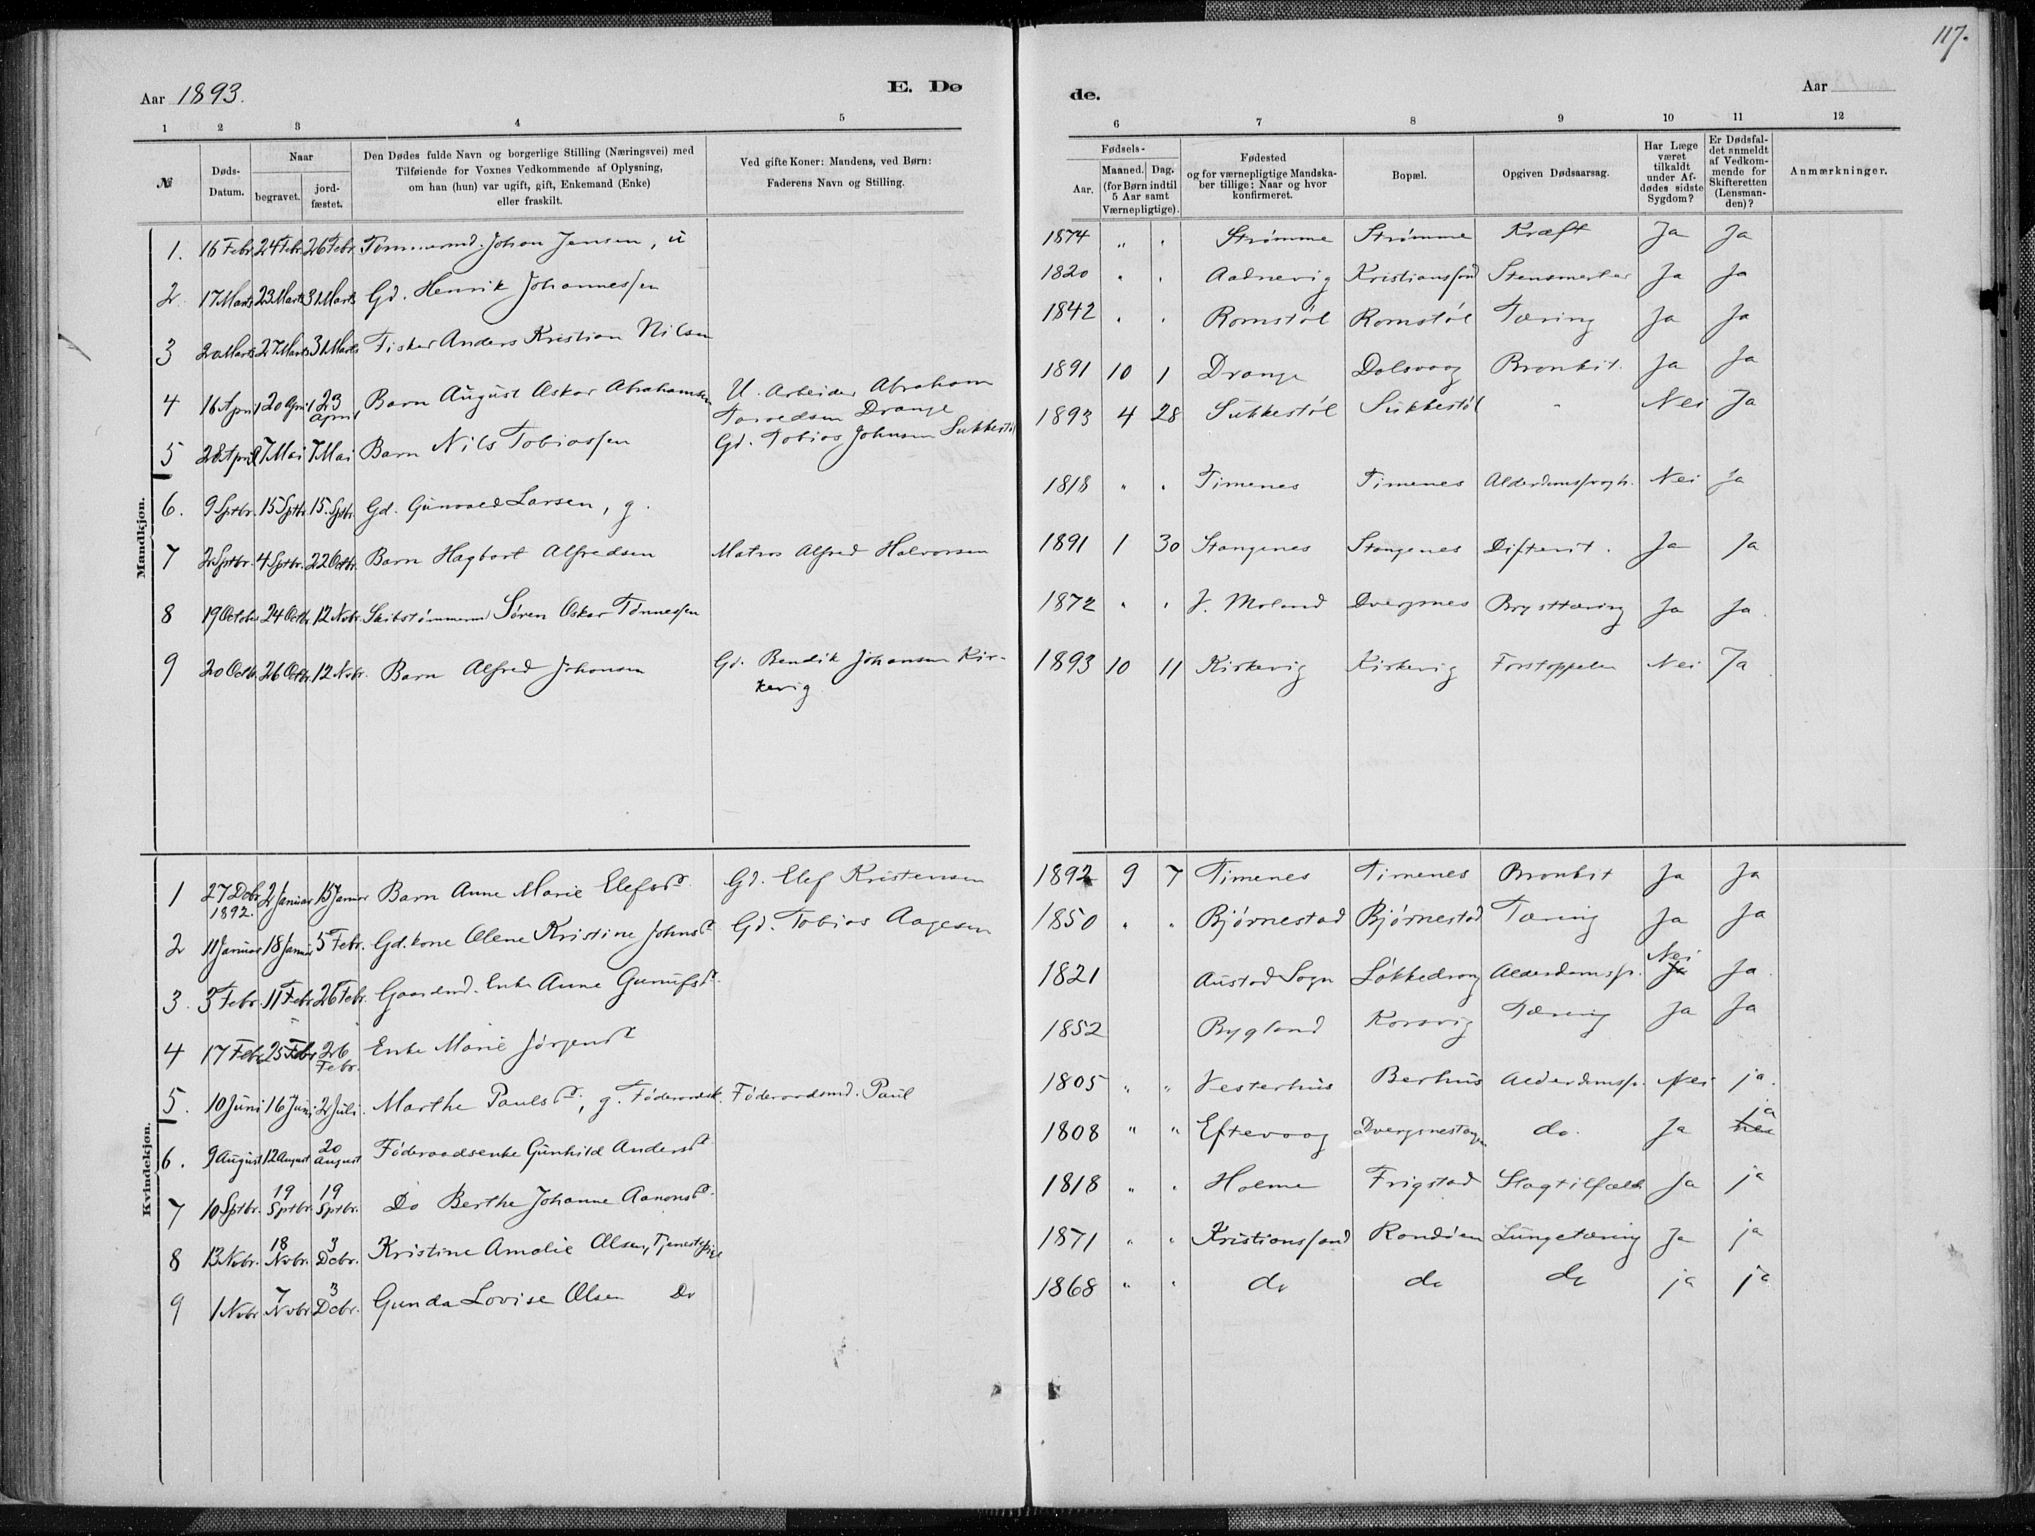 117.
Aar 1893.
E. Dø
de.
Aar
1 2 3 4 5
6 7 8 9 10 11 12
№
Døds-
Datum.
Naar
begravet.
jord-
fæstet.
Den Dødes fulde Navn og borgerlige Stilling (Næringsvei) med
Tilføiende for Voxnes Vedkommende af Oplysning,
om han (hun) var ugift, gift, Enkemand (Enke)
eller fraskilt.
Ved gifte Koner: Mandens, ved Børn:
Faderens Navn og Stilling.
Fødsels-
Aar.
Maaned. Dag.
(for Børn indtil
5 Aar samt
Værnepligtige).
Fødested
og for værnepligtige Mandska-
ber tillige: Naar og hvor
konfirmeret.
Bopæl.
Opgiven Dødsaarsag.
Har Læge
været
tilkaldt
under Af-
dødes sidste
Sygdom?
Er Dødsfal-
det anmeldt
af Vedkom-
mende for
Skifteretten
(Lensman-
den)?
Anmærkninger.
Mandkjøn.
1. 16 Febr 24 Febr 26 Febr Tømmermd. Johan Jensen, u 1874 " " Strømme Strømme Kræft Ja Ja
2 17 Marts 23 Marts 31 Marts Gd. Henrik Johannessen 1820 " " Aadnevig Kristianssand Stensmerter Ja Ja
3 20 Marts 27 Marts 31 Marts Fisker Anders Kristian Nilsen 1842 " " Romstøl Romstøl Tæring Ja Ja
4 16 April 20 April 23 April Barn August Oskar Abrahamsen U. Arbeider Abraham
Torredsen Drange 1891 10 1 Drange Dolsvaag Bronkit. Ja Ja
5 28 April 7 Mai 7 Mai Barn Nils Tobiassen Gd. Tobias Johnsen Sukkestøl 1893 4 28 Sukkestøl Sukkestøl " Nei Ja
6. 9 Sptbr. 15 Sptbr. 15. Sptbr. Gd. Gunvald Larsen, g. 1818 " " Timenes Timenes Nei Ja
7 2 Sptbr. 4 Sptbr. 22 Octbr. Barn Hagbart Alfredsen Matros Alfred Halvorsen 1891 1 30 Stangenes Stangenes Difterit. Ja Ja
8 19 October 24 Octbr 12 Nvbr. Skibstømmermd Søren Oskar Tønnessen 1872 " " V. Moland Dvergsnes Brysttæring Ja Ja.
9 20 Octbr. 26 Octbr. 12 Nvbr. Barn Alfred Johansen Gd. Bendik Johansen Kir-
kevig 1893 10 11 Kirkevig Kirkevig Forstoppelse Nei Ja
Kvindekjøn.
1 27 Dcbr 1892. 2 Januar 15 Januar Barn Anne Marie Elefsd. Gd. Elef Kristensen 1892 9 7 Timenes Timenes Bronkit Ja Ja
2 11 Januar 18 Januar 5 Febr. Gd. kone Olene Kristine Johnsd. Gd. Tobias Aagesen 1850 " " Bjørnestad Bjørnestad Tæring Ja Ja
3. 3 Febr. 11 Febr 26 Febr. Gaardmd. Enke Anne Gunufsd. 1821 Austad Sogn Løkkedrang Alderdomssv. Nei Ja
4 17 Febr 25 Febr 26 Febr. Enke Marie Jørgensd. 1852 Bygland Korsvig Tæring Ja Ja
5. 10 Juni 16 Juni 2 Juli. Marthe Paulsd., g. Føderaadsk. Føderaadsmd. Paul 1805 " " Vesterhus Berhus Alderdomssv. Nei ja.
6. 9 August 12 August 20 August Føderaadsenke Gunhild Andersd. 1808 " " Eftevaag Dvergsnestangen do. Ja ja
7 10 Sptbr. 19 Sptbr. 19 Sptbr. Do Berthe Johanne Aanonsd. 1818 " " Holme Frigstad Slagtilfælde Ja ja
8 13 Nvbr. 18 Nvbr. 3 Dcbr. Kristine Amalie Olsen, Tjenestepige 1871 " " Kristianssand Randøen Lungetæring Ja ja
9 1 Nvbr 7 Nvbr 3 Dcbr. Gunda Lovise Olsen Do 1868 " " do do do ja ja